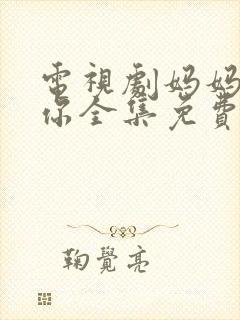 電視劇妈妈
你全集免費
鞠覺亮